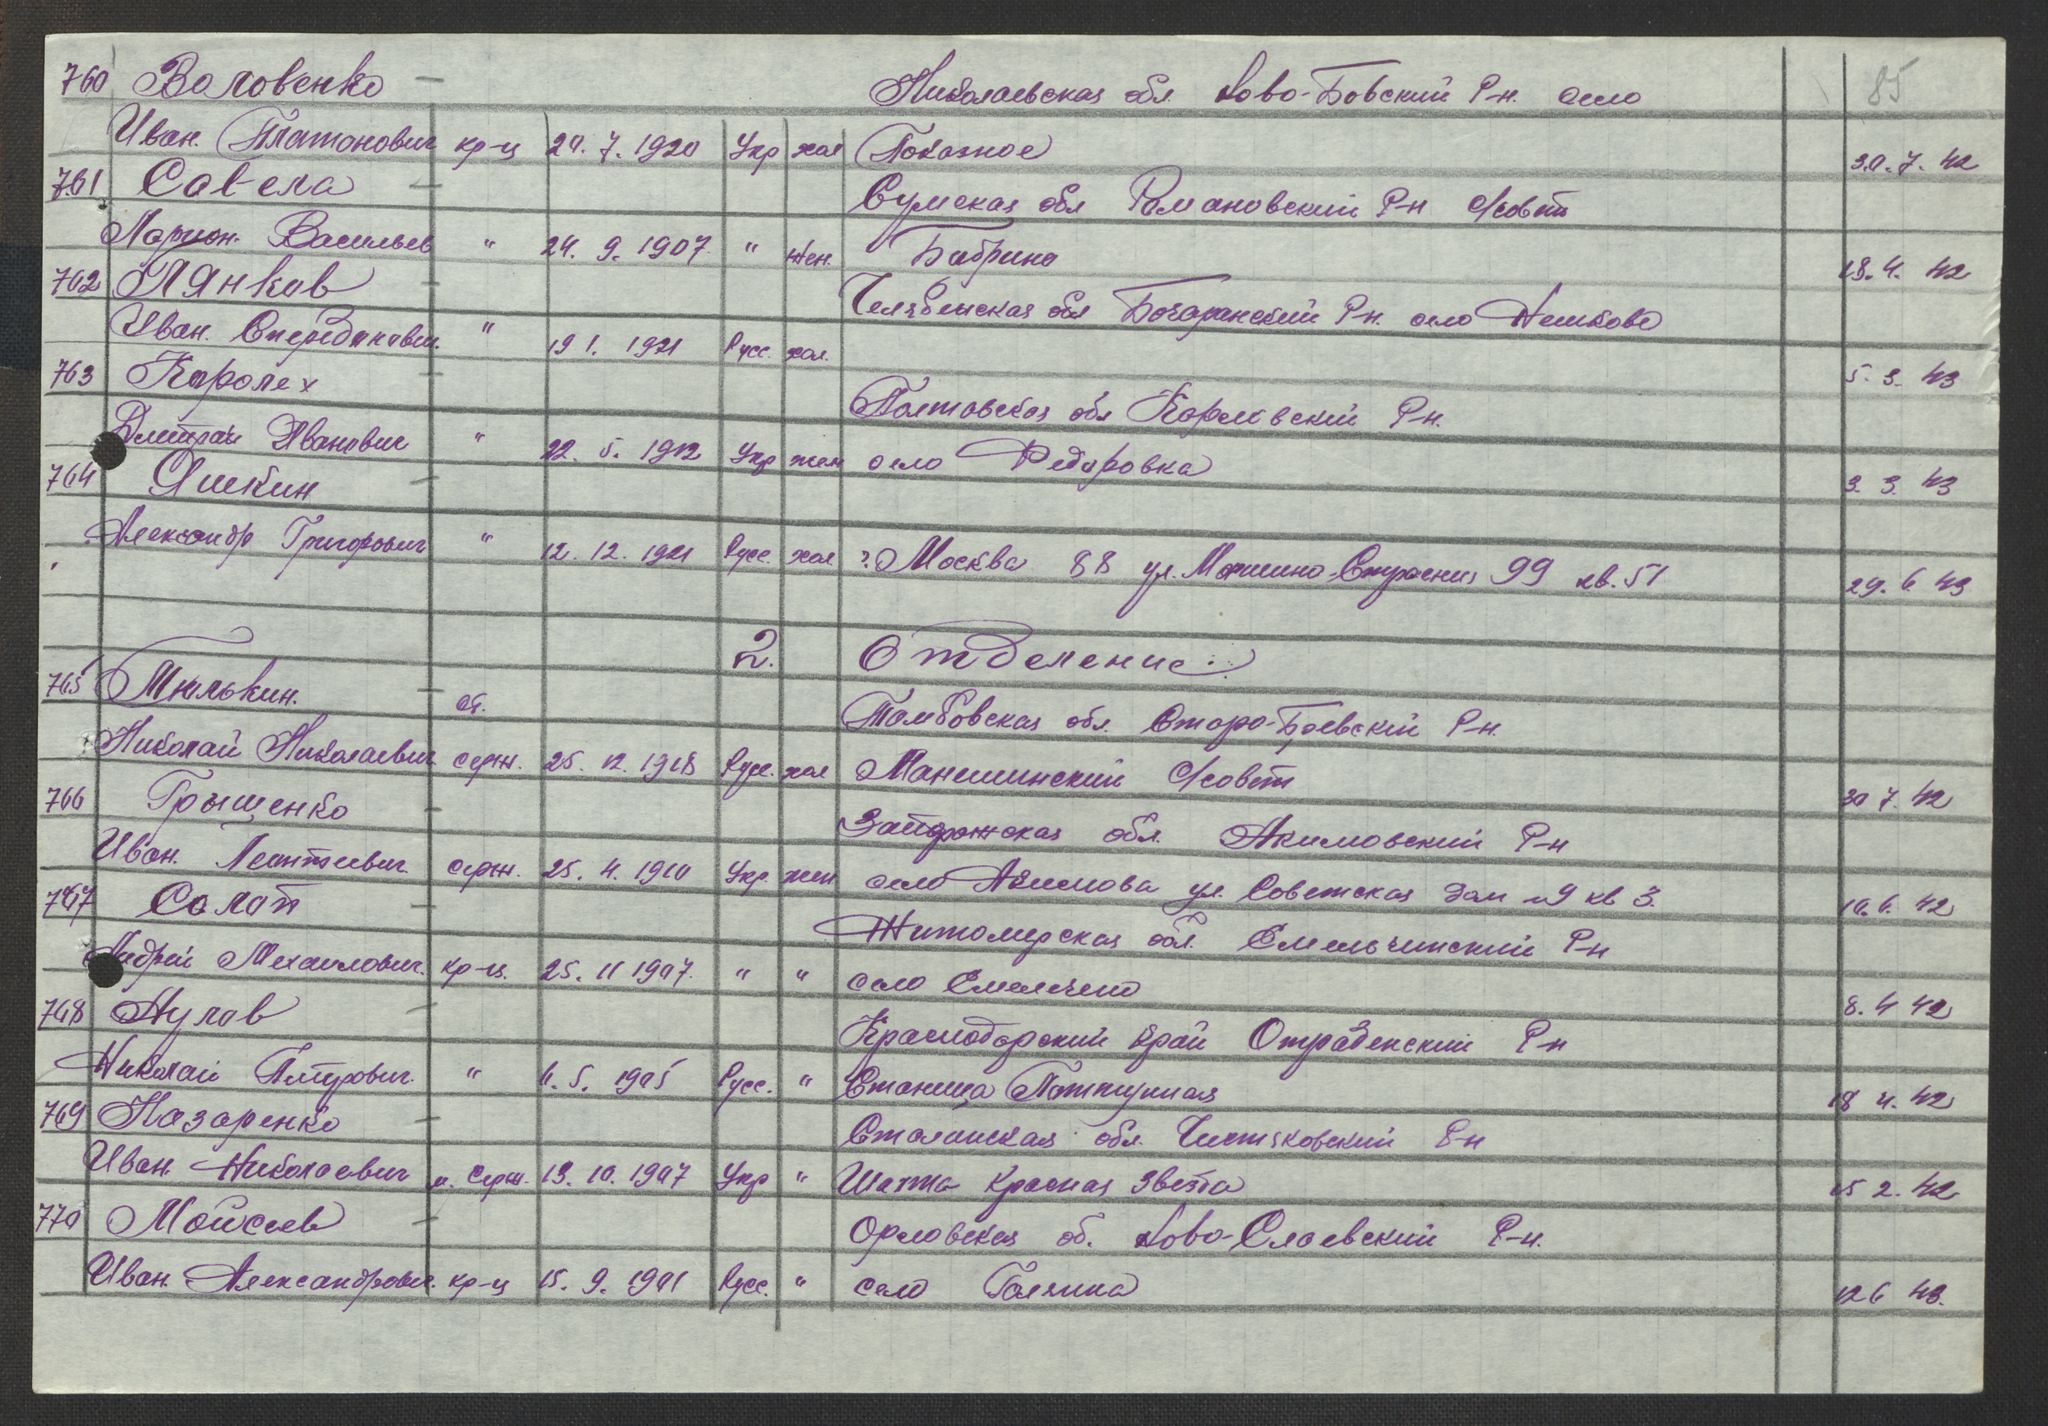 85
760 Воловенко — Николаевская обл. Ново-Бовский Р-н. село
Иван Платонович кр-ц 20.7.1920 Укр хол Показное 30.7.42
761 Савела — Сумская обл Романовский Р-н С/совет
Ларион Васильев " 24.9.1907 " жен. Бабрино 18.4.42
762 Пянков — Челябенская обл Р-н. село
Иван " 19 1. 1921 Русс. хол. 5.3.43
763 Королех — Полтовская обл Карловский Р-н.
Дмитрий Иванович " 22.5.1912 Укр жен село Федоровка 3.3.43
764 Яшкин —
Александр Григорович " 12.12.1921 Русс. хол г. Москва 88 ул. 99 кв. 51 29.6 43
2. Отделение.
765 Тюлькин. — ст. Томбовская обл. Старо-Боевский Р-н.
Николай Николаевич серж. 25.12.1918 Русс. хол Манешинский С/совет 30 7.42
766 Грыщенко — обл. Акимовский Р-н
Иван Леонтиевич серж. 25.4.1910 Укр жен село Акимова ул. Советская дом №9 кв 3. 10.6.42
767 Солоп — Житомерская обл. Емельчинский Р-н
Андрей Михаилович. кр-ц. 25.11 1907. " " село Емелечено 8.4 42
768 Нулов — Краснодорский край Отрадненский Р-н
Николай Пітрович. " 6.5.1905 Русс. " Станица 18 4.42
769 Назаренко — Сталинская обл. Чистяковский Р-н
Иван Николаевич м. серж. 13.10.1907 Укр " Шахта Красная Звезта 15 2.42
770 Мойсеев — Орловская об. Ново-Слоевский Р-н.
Иван Александрович кр-ц 15.9.1901 Русс. " село Голянка 12 6 43.